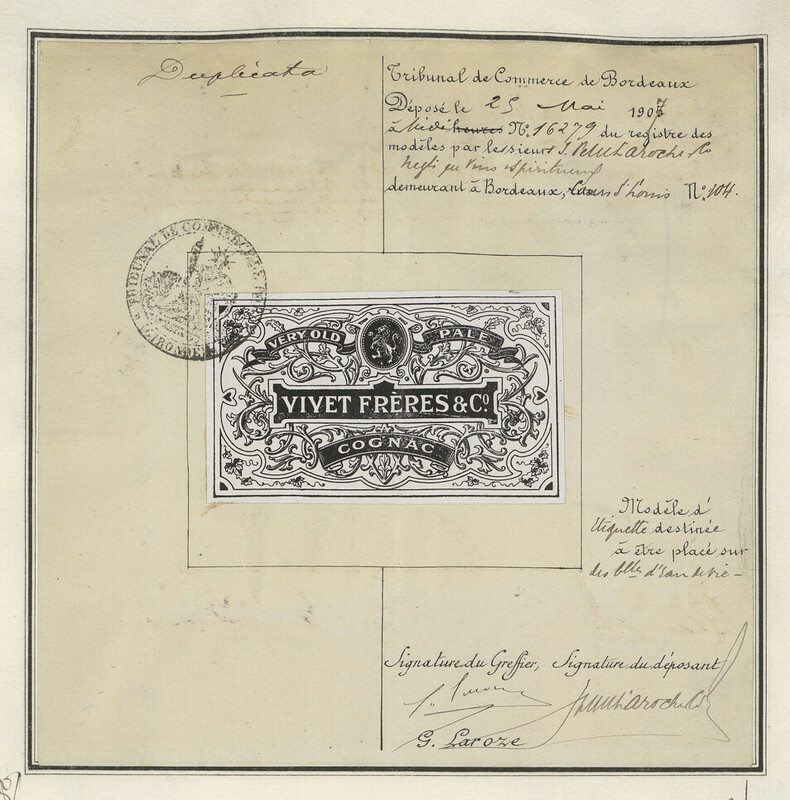 Duplicata
Tribunal de Commerce de Bordeaux
Déposé le 25 Mai 1907
à Midi heures No. 16279 du registre des
modèles par les sieurs J. Petit Laroche & Co
Negts en Vins & Spiritueux
demeurant à Bordeaux, No. 104.
TRIBUNAL DE COMMERCE
GIRONDE
VERY OLD PALE
VIVET FRÈRES & Co.
COGNAC
Modèle d'
Etiquette destinée
à être placé sur
des blles d'Eau de vie -
Signature du Greffier, Signature du déposant
G. Laroze